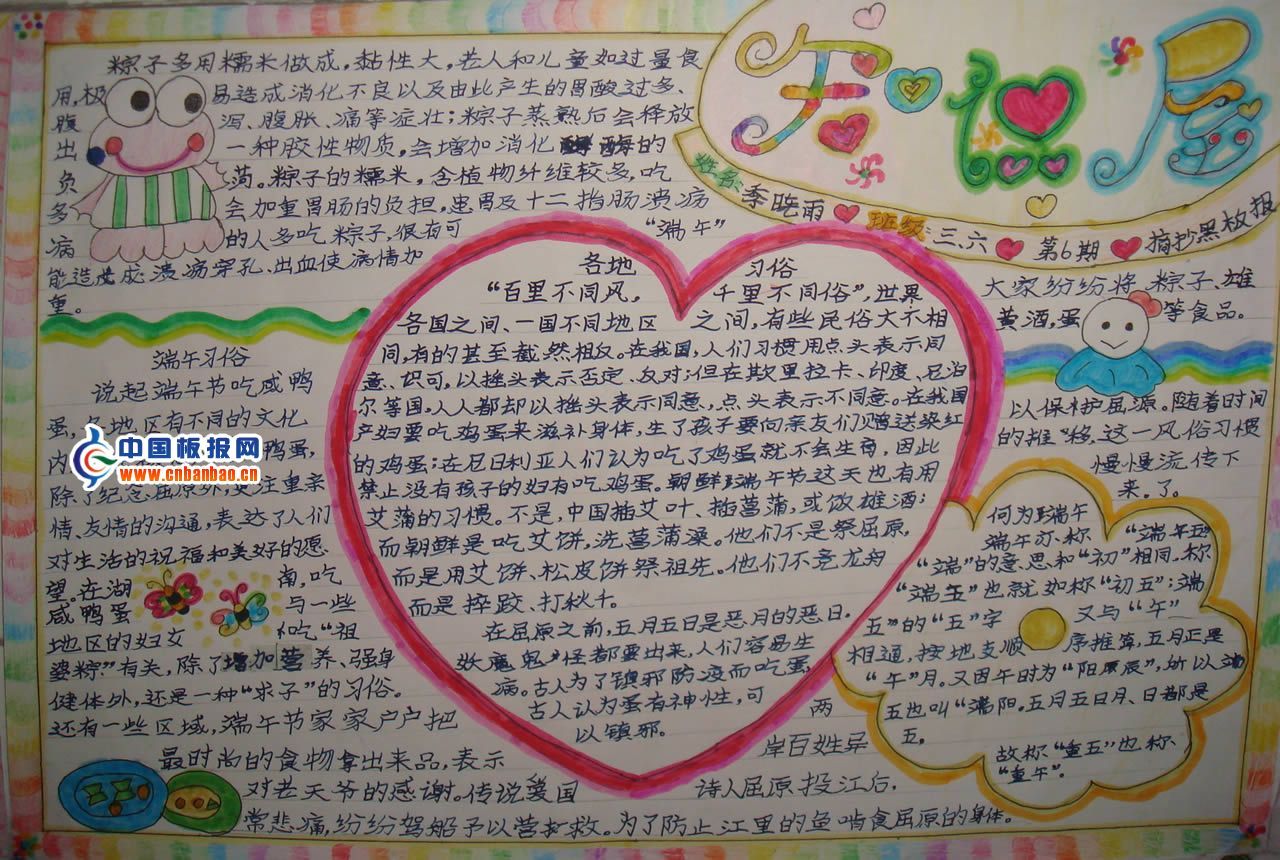 知识屋
姓名:李晓雨 班级:三、六 第6期 摘抄黑板报
粽子多用糯米做成,黏性大,老人和儿童如过量食
用,极易造成消化不良以及由此产生的胃酸过多、
腹泻、腹胀、痛等症壮;粽子蒸熟后会释放
出一种胶性物质,会增加消化酶的
负荷。粽子的糯米,含植物纤维较多,吃
多会加重胃肠的负担,患胃及十二指肠溃疡
病的人多吃粽子,很有可
能造成溃疡穿孔、出血使病情加
重。
端午习俗
说起端午节吃咸鸭
蛋,各地区有不同的文化
内
鸭蛋,
除了纪念屈原外,更注重亲
情、友情的沟通,表达了人们
对生活的祝福和美好的愿
望。在湖南,吃
咸鸭蛋与一些
地区的妇女吃“祖
婆粽”有关,除了增加营养、强身
健体外,还是一种“求子”的习俗。
还有一些区域,端午节家家户户把
最时尚的食物拿出来品,表示
对老天爷的感谢。传说爱国
诗人屈原投江后,
两岸百姓异
常悲痛,纷纷驾船予以营救。为了防止江里的鱼啃食屈原的身体。
“端午”
各地习俗
“百里不同风,千里不同俗”,世界
各国之间、一国不同地区之间,有些民俗大不相
同,有的甚至截然相反。在我国,人们习惯用点头表示同
意、识可。以摇头表示否定、反对;但在斯里拉卡、印度、尼泊
尔等国,人人都却以摇头表示同意,点头表示不同意。在我国
产妇要吃鸡蛋来滋补身体,生了孩子要向亲友们赠送染红
的鸡蛋;在尼日利亚人们认为吃了鸡蛋就不会生育,因此
禁止没有孩子的妇有吃鸡蛋。朝鲜端午节这天也有用
艾蒲的习惯。不是,中国插艾叶、插菖蒲,或饮雄酒;
而朝鲜是吃艾饼,洗菖蒲澡。他们不是祭屈原,
而是用艾饼、松皮饼祭祖先。他们不竞龙舟
而是摔跤、打秋千。
在屈原之前,五月五日是恶月的恶日。
妖魔鬼怪都要出来,人们容易生
病。古人为了镇邪防疫而吃蛋,
古人认为蛋有神性,可
以镇邪。
大家纷纷将粽子、雄
黄酒,蛋等食品。
以保护屈原。随着时间
的推移,这一风俗习惯
慢慢流传下
来。了。
何为端午
端午亦称“端午五”
“端”的意思和“初”相同,称
“端五”也就如称“初五”;端
五”的“五”字又与“午”
相通,按地支顺序推算,五月正是
“午”月。又因午时为“阳辰”,所以端
五也叫“端阳。五月五日月、日都是
五。
故称“重五”也称、
“重午”。
中国板报网
www.cnbanbao.cn